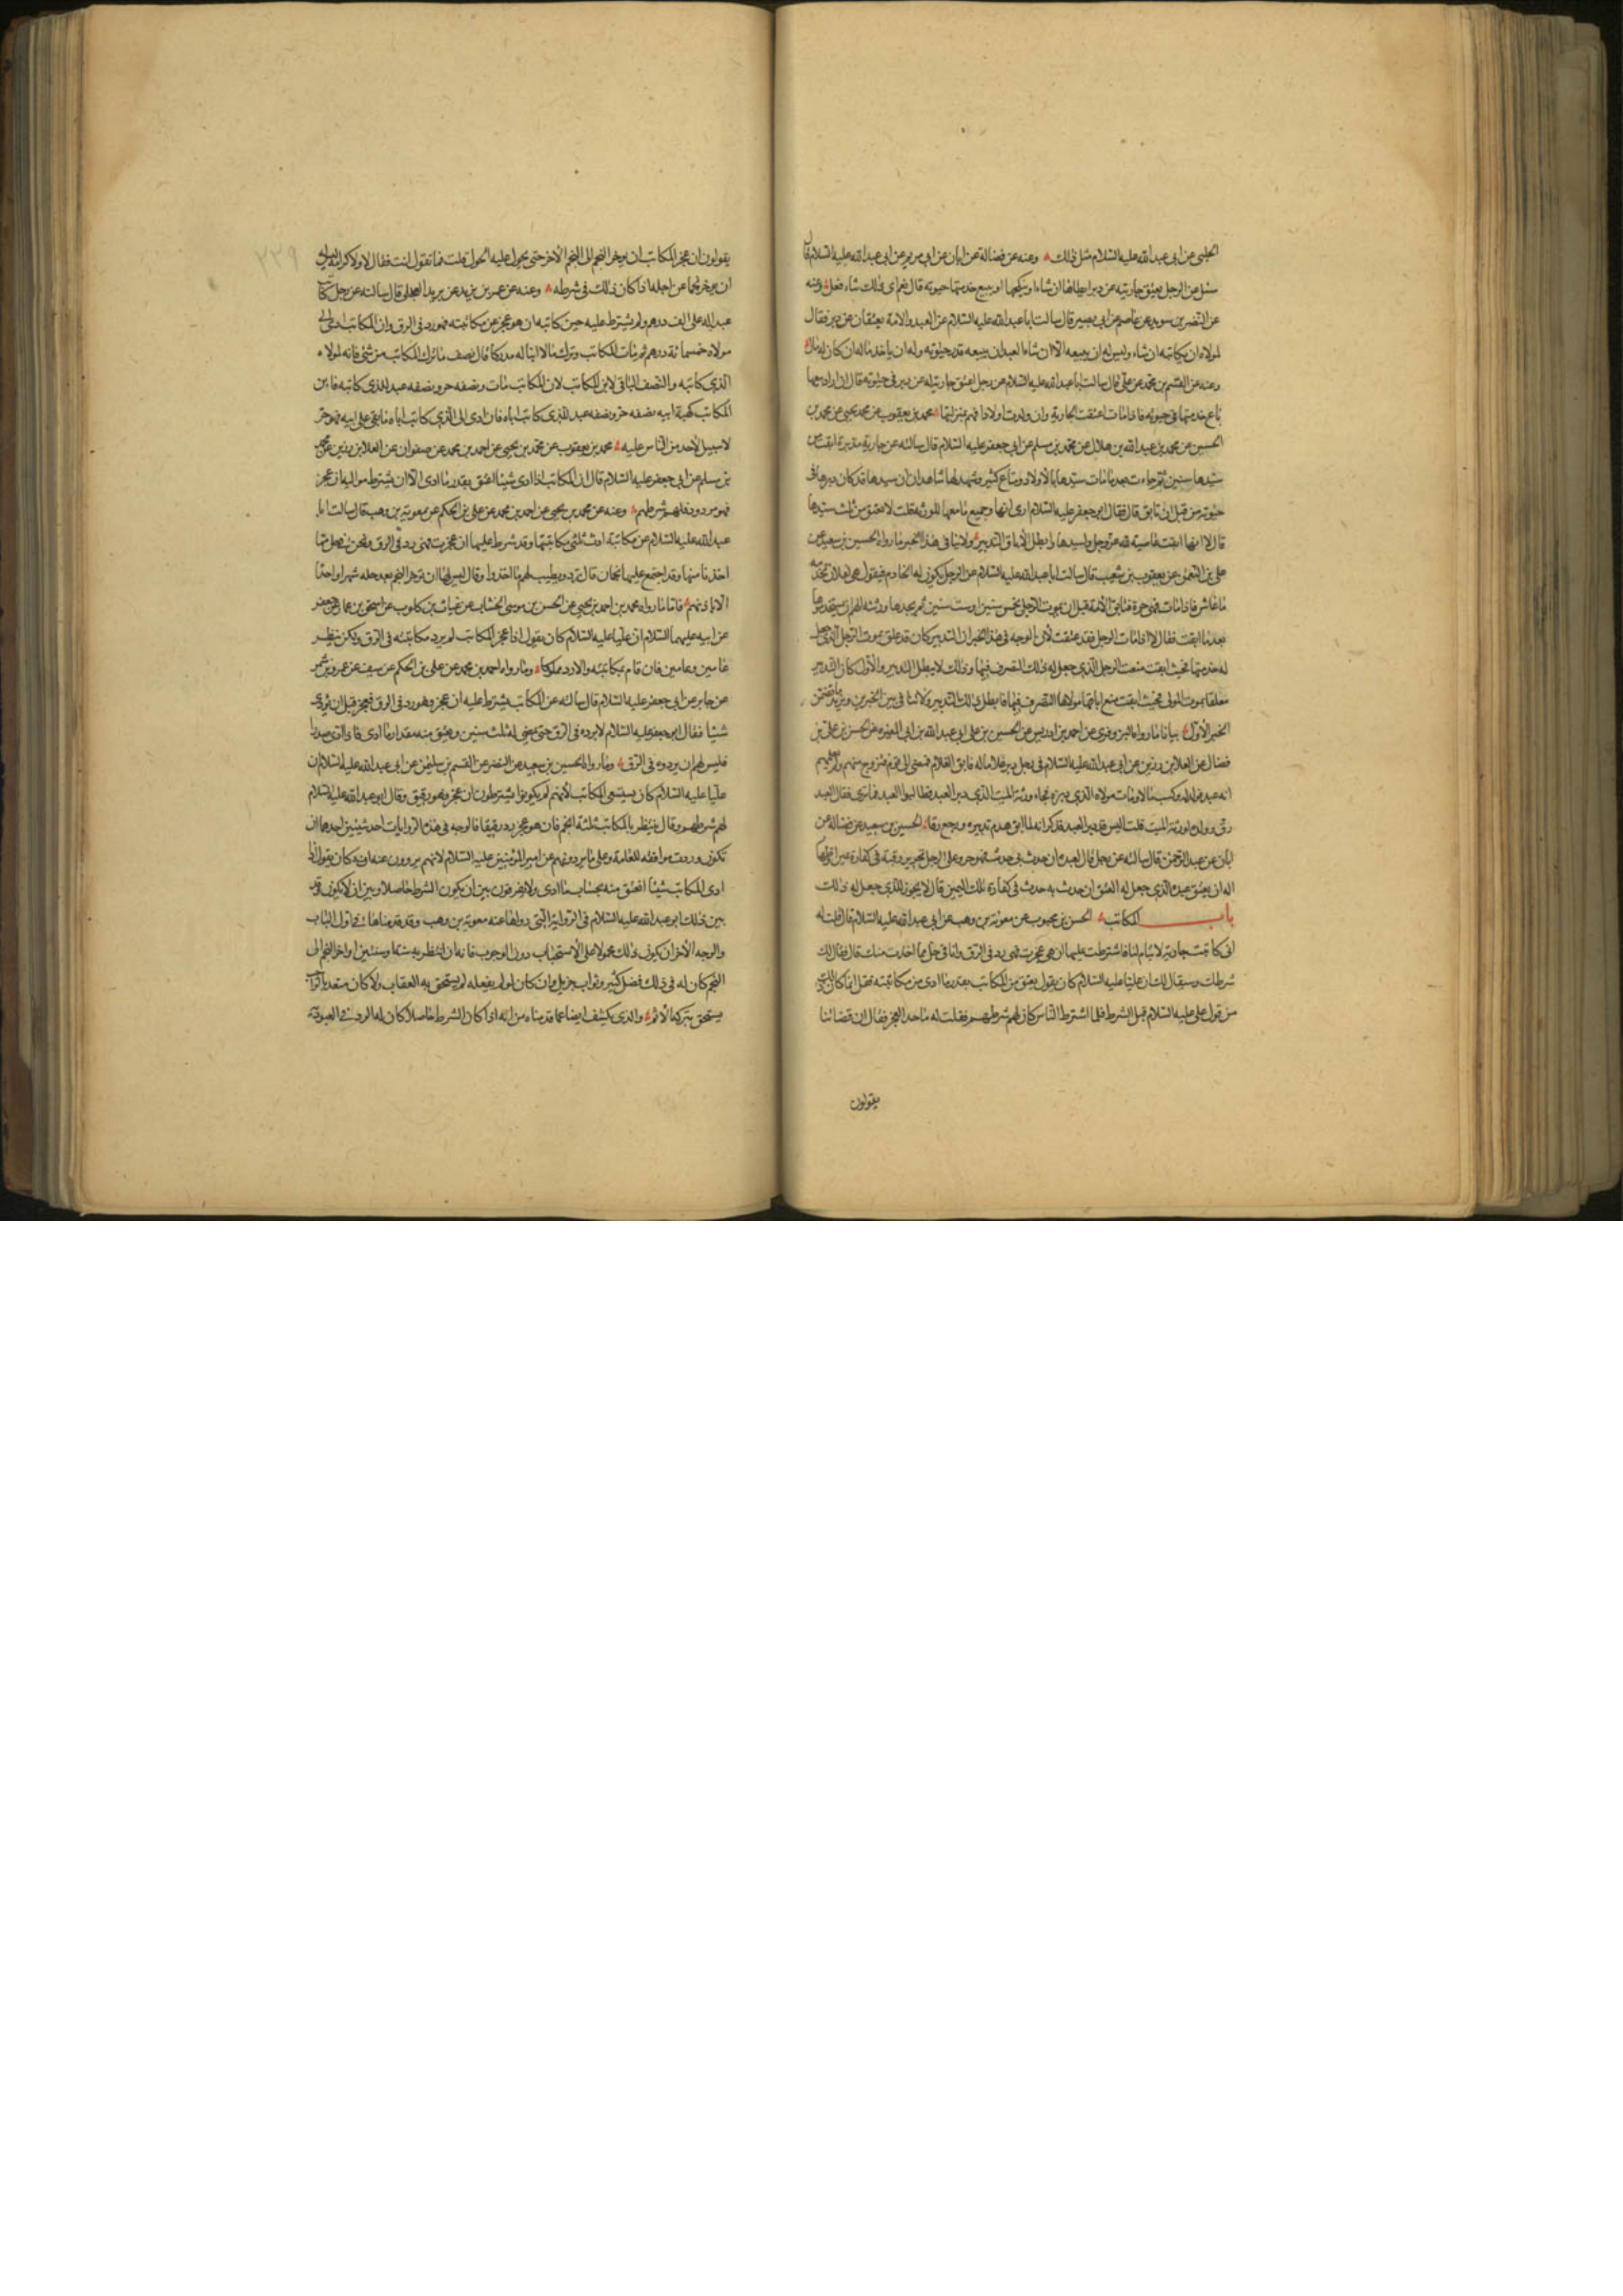 الحلبي عن ابي عبد الله عليه السلام مثل ذلك وعنه عن فضالة عن ابان عن ابي مريم عن ابي عبد الله عليه السلام قال
سئل عن الرجل يعتق جاريته عن دبر ايطاها ان شاء او ينكحها او يبيع خدمتها حيوته قال نعم اي ذلك شاء فعل وعنه
عن النضر بن سويد عن عاصم عن ابي بصير قال سالت ابا عبد الله عليه السلام عن العبد والامة يعتقان عن دبر فقال
لمولاه ان يكاتبه ان شاء وليس له ان يبيعه الا ان شاء العبد ان يبيعه قدر حيوته وله ان ياخذ ماله ان كان له مال
وعنه عن القسم بن محمد عن علي قال سالت ابا عبد الله عليه السلام عن رجل اعتق جارية له عن دبر في حيوته قال ان اراد بيعها
باع خدمتها في حيوته فاذا مات اعتقت الجارية وان ولدت اولادا فهم بمنزلتها محمد بن يعقوب عن محمد بن يحيى عن محمد بن
الحسين عن محمد بن عبد الله بن هلال عن محمد بن مسلم عن ابي جعفر عليه السلام قال سالته عن جارية مدبرة ابقت من
سيدها سنين ثم جاءت بعد ما مات سيدها باولاد ومتاع كثير وشهد لها شاهدان ان سيدها قد كان دبرها في
حيوته من قبل ان تابق قال فقال ابو جعفر عليه السلام ارى انها وجميع ما معها للورثة قلت لا تعتق من ثلث سيدها
قال لا انها ابقت عاصية لله عز وجل ولسيدها وابطل الاباق التدبير ولا ينافي هذا الخبر ما رواه الحسين بن سعيد عن
علي بن النعمن عن يعقوب بن شعيب قال سالت ابا عبد الله عليه السلام عن الرجل يكون له الخادم فيقول هي لفلان تخدمه
ما عاش فاذا مات فهي حرة فتابق الامة قبل ان يموت الرجل بخمس سنين او ست سنين ثم يجدها ورثته الهم ان يستخدموها
بعد ما ابقت فقال لا اذا مات الرجل فقد عتقت لان الوجه في هذا الخبر ان التدبير كان قد علق بموت الرجل الذي جعل
له خدمتها فحيث ابقت منعت الرجل الذي جعل له ذلك التصرف فيها وذلك لا يبطل التدبير والاول كان التدبير
معلقا بموت المولى فحيث ابقت منع اباقها مولاها التصرف فيها فابطل ذلك التدبير ولا تنافي بين الخبرين ويزيد ما تضمن
الخبر الاول بيانا ما رواه البزوفري عن احمد بن ادريس عن الحسين بن علي ابي عبد الله بن ابي المغيره عن الحسن بن علي بن
فضال عن العلا بن رزين عن ابي عبد الله عليه السلام في رجل دبر غلاما له فابق الغلام فمضى الى قوم فتزوج منهم ولم يعلمهم
انه عبد فولد له وكسب مالا ومات مولاه الذي دبره فجاء ورثة الميت الذي دبر العبد فطالبوا العبد فما ترى فقال العبد
رق وولده لورثة الميت قلت اليس قد دبر العبد فذكر انه لما ابق هدم تدبيره ورجع رقا الحسين بن سعيد عن فضالة عن
ابان عن عبد الرحمن قال سالته عن رجل قال لعبده ان حدث بي حدث فهو حر وعلى الرجل تحرير رقبة في كفارة يمين او ظهار
اله ان يعتق عبده الذي جعل له العتق ان حدث به حدث في كفارة تلك اليمين قال لا يجوز للذي جعل له ذلك
باب المكاتب الحسن بن محبوب عن معوية بن وهب عن ابي عبد الله عليه السلام قال قلت له
اني كاتبت جارية لايتام لنا فاشترطت عليها ان هي عجزت فهي رد في الرق وانا في حل مما اخذت منك قال فقال لك
شرطك وسيقال لك ان عليا عليه السلام كان يقول يعتق من المكاتب بقدر ما ادى من مكاتبته فقل انما كان ذلك
من قول علي عليه السلام قبل الشرط فلما اشترط الناس كان لهم شرطهم فقلت له ما حد العجز فقال ان قضاتنا
يقولون
يقولون ان عجز المكاتب ان يوخر النجم الى النجم الاخر حتى يحول عليه الحول قلت فما تقول انت فقال لا ولا كرامة ليس له
ان يوخر نجما عن اجله اذا كان ذلك في شرطه وعنه عن عمر بن يزيد عن بريد العجلي قال سالته عن رجل كاتب
عبدا له على الف درهم ولم يشترط عليه حين كاتبه ان هو عجز عن مكاتبته فهو رد في الرق وان المكاتب ادى الى
مولاه خمسمائة درهم ثم مات المكاتب وترك مالا وابنا له مدركا قال نصف ما ترك المكاتب من شئ فانه لمولاه
الذي كاتبه والنصف الباقي لابن المكاتب لان المكاتب مات ونصفه حر ونصفه عبد للذي كاتبه فابن
المكاتب كهيئة ابيه نصفه حر ونصفه عبد للذي كاتب اباه فان ادى الى الذي كاتب اباه ما بقي على ابيه فهو حر
لا سبيل لاحد من الناس عليه محمد بن يعقوب عن محمد بن يحيى عن احمد بن محمد عن صفوان عن العلا بن رزين عن محمد
بن مسلم عن ابي جعفر عليه السلام قال ان المكاتب اذا ادى شيئا اعتق بقدر ما ادى الا ان يشترط مواليه ان عجز
فهو مردود فلهم شرطهم وعنه عن محمد بن يحيى عن احمد بن محمد عن علي بن الحكم عن معوية بن وهب قال سالت ابا
عبد الله عليه السلام عن مكاتبة ادت ثلثي مكاتبتها وقد شرط عليها ان عجزت فهي رد في الرق ونحن في حل مما
اخذنا منها وقد اجتمع عليها نجمان قال ترد ويطيب لهم ما اخذوا وقال ليس لها ان توخر النجم بعد حله شهرا واحدا
الا باذنهم فاما ما رواه محمد بن احمد بن يحيى عن الحسن بن موسى الخشاب عن غياث بن كلوب عن اسحق بن عمار عن جعفر
عن ابيه عليهما السلام ان عليا عليه السلام كان يقول اذا عجز المكاتب لم يرد مكاتبته في الرق ولكن ينتظر
عاما وعامين فان قام بمكاتبته والا رد مملوكا وما رواه احمد بن محمد عن علي بن الحكم عن سيف عن عمرو بن شمر
عن جابر عن ابي جعفر عليه السلام قال سالته عن المكاتب يشترط عليه ان عجز فهو رد في الرق فعجز قبل ان يودي
شيئا فقال ابو جعفر عليه السلام لا يرده في الرق حتى يمضي له ثلث سنين ويعتق منه مقدار ما ادى فاذا ادى صدرا
فليس لهم ان يردوه في الرق وما رواه الحسين بن سعيد عن النضر عن القسم بن سليمن عن ابي عبد الله عليه السلام ان
عليا عليه السلام كان يستسعي المكاتب لانهم لم يكونوا يشترطون ان عجز فهو رقيق وقال ابو عبد الله عليه السلام
لهم شرطهم وقال ينتظر بالمكاتب ثلثة انجم فان هو عجز رد رقيقا فالوجه في هذه الروايات احد شيئين احدهما ان
تكون وردت موافقة للعامة وعلى ما يروونهم عن امير المؤمنين عليه السلام لانهم يروون عنه انه كان يقول اذا
ادى المكاتب شيئا اعتق منه بحساب ما ادى ولا يفرقون بين ان يكون الشرط حاصلا وبين ان لا يكون وقد
بين ذلك ابو عبد الله عليه السلام في الرواية التي رواها عنه معوية بن وهب وقد قدمناها في اول الباب
والوجه الاخر ان يكون ذلك محمولا على الاستحباب دون الوجوب فانه ان انتظر به سنة وسنتين او اخر النجم الى
النجم كان له في ذلك فضل كثير وثواب جزيل وان كان لو لم يفعله لم يستحق به العقاب ولا كان متعديا
يستحق بتركه الاثم والذي يكشف ايضا عما قدمناه من انه اذا كان الشرط حاصلا كان له الرد في العبودية
٢٣٩